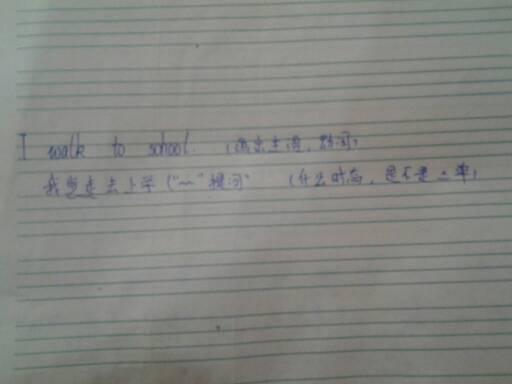 I walk to school. (指出主语,动词)
我步走去上学("~"提问) (什么时态,是不是三单)